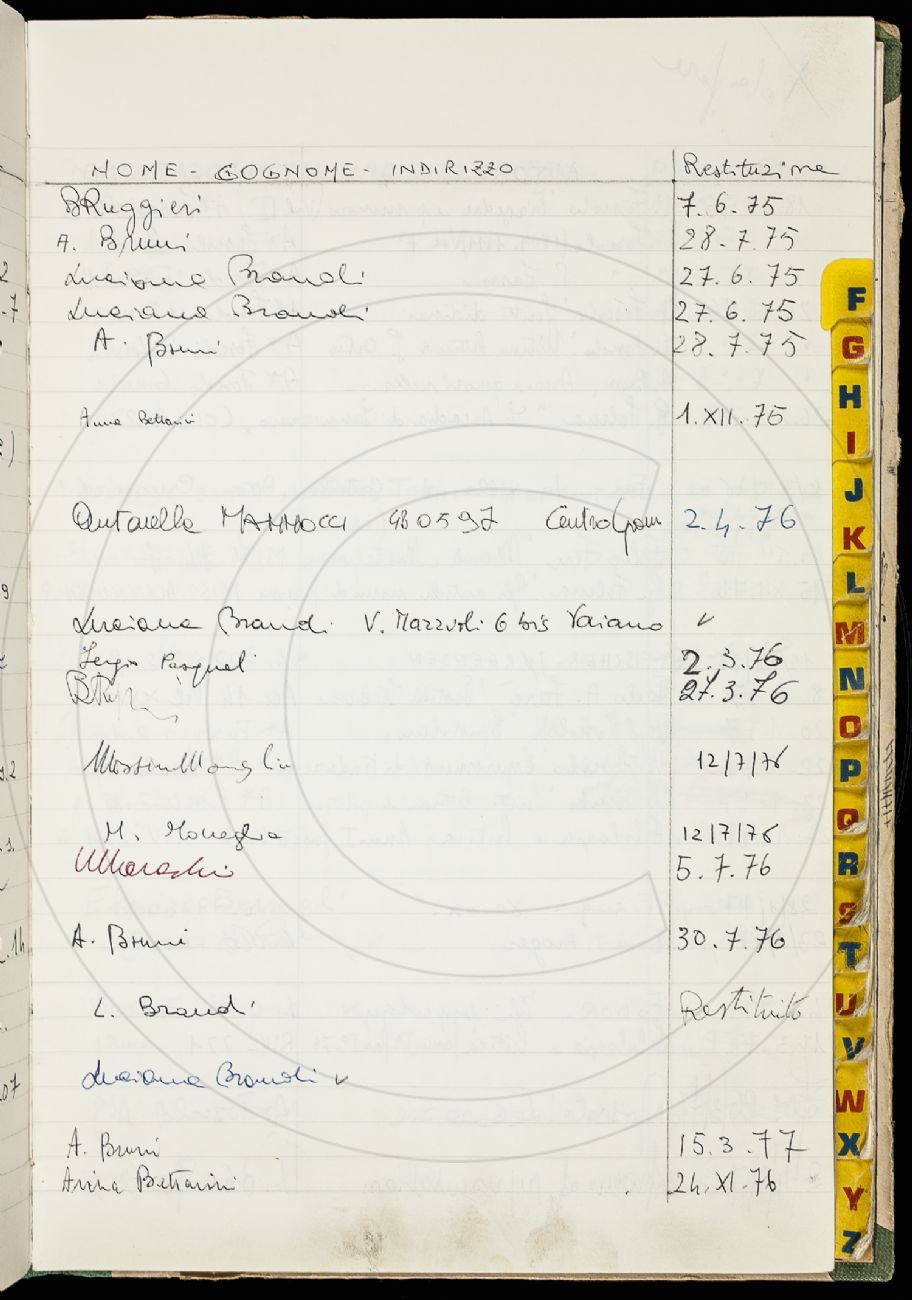 NOME - COGNOME - INDIRIZZO Restituzione
BRuggieri 7.6.75
A. Bruni 28.7.75
Luciana Brandi 27.6.75
Luciana Brandi 27.6.75
A. Bruni 28.7.75
Anna Bettarini 1.XII.75
Antonella MANNOCCI 480597 2.4.76
Luciana Brandi V. Mazzoli 6 bis Vaiano ✓
Sergio Pasquali 2.3.76
27.3.76
Massimo Moneglia 12/7/76
M. Moneglia 12/7/76
5.7.76
A. Bruni 30.7.76
L. Brandi Restituito
Luciana Brandi ✓
A. Bruni 15.3.77
Anna Bettarini 24.XI.76
F
G
H
I
J
K
L
M
N
O
P
Q
R
S
T
U
V
W
X
Y
Z